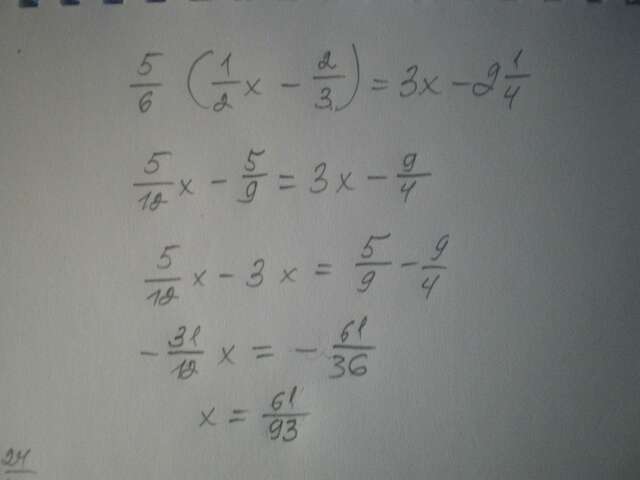 5/6 (1/2 x - 2/3) = 3x - 2 1/4
5/12 x - 5/9 = 3x - 9/4
5/12 x - 3x = 5/9 - 9/4
- 31/12 x = - 61/36
x = 61/93
24